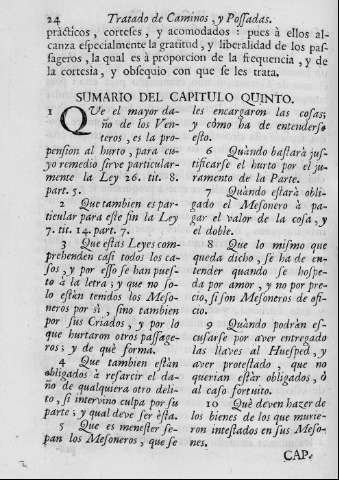 24 Tratado de Caminos, y Possadas.
pràcticos, corteses, y acomodados: pues à ellos al-
canza especialmente la gratitud, y liberalidad de los pas-
sageros, la qual es à proporcion de la frequencia, y de
la cortesia, y obsequio con que se les trata.
SUMARIO DEL CAPITULO QUINTO.
1 QUe el mayor da-
ño de los Ven-
teros, es la pro-
pension al hurto, para cu-
yo remedio sirve particular-
mente la Ley 26. tit. 8.
part. 5.
2 Que tambien es par-
ticular para este fin la Ley
7. tit. 14. part. 7.
3 Que estas Leyes com-
prehenden casi todos los ca-
sos, y por esso se han pues-
to à la letra; y que no so-
lo estàn tenidos los Meso-
neros por sì, sino tambien
por sus Criados, y por lo
que hurtaron otros passage-
ros; y de què forma.
4 Que tambien estàn
obligados à resarcir el da-
ño de qualquiera otro deli-
to, si intervino culpa por su
parte; y qual deve ser èsta.
5 Que es menester se-
pan los Mesoneros, que se
les encargaron las cosas;
y còmo ha de entenderse
esto.
6 Quàndo bastarà jus-
tificarse el hurto por el ju-
ramento de la Parte.
7 Quàndo estarà obli-
gado el Mesonero à pa-
gar el valor de la cosa, y
el doble.
8 Que lo mismo que
queda dicho, se ha de en-
tender quando se hospe-
da por amor, y no por pre-
cio, si son Mesoneros de ofi-
cio.
9 Quàndo podràn es-
cusarse por aver entregado
las llaves al Huesped, y
aver protestado, que no
querian estàr obligados, ò
al caso fortuito.
10 Què deven hazer de
los bienes de los que murie-
ron intestados en sus Meso-
nes.
CAP.